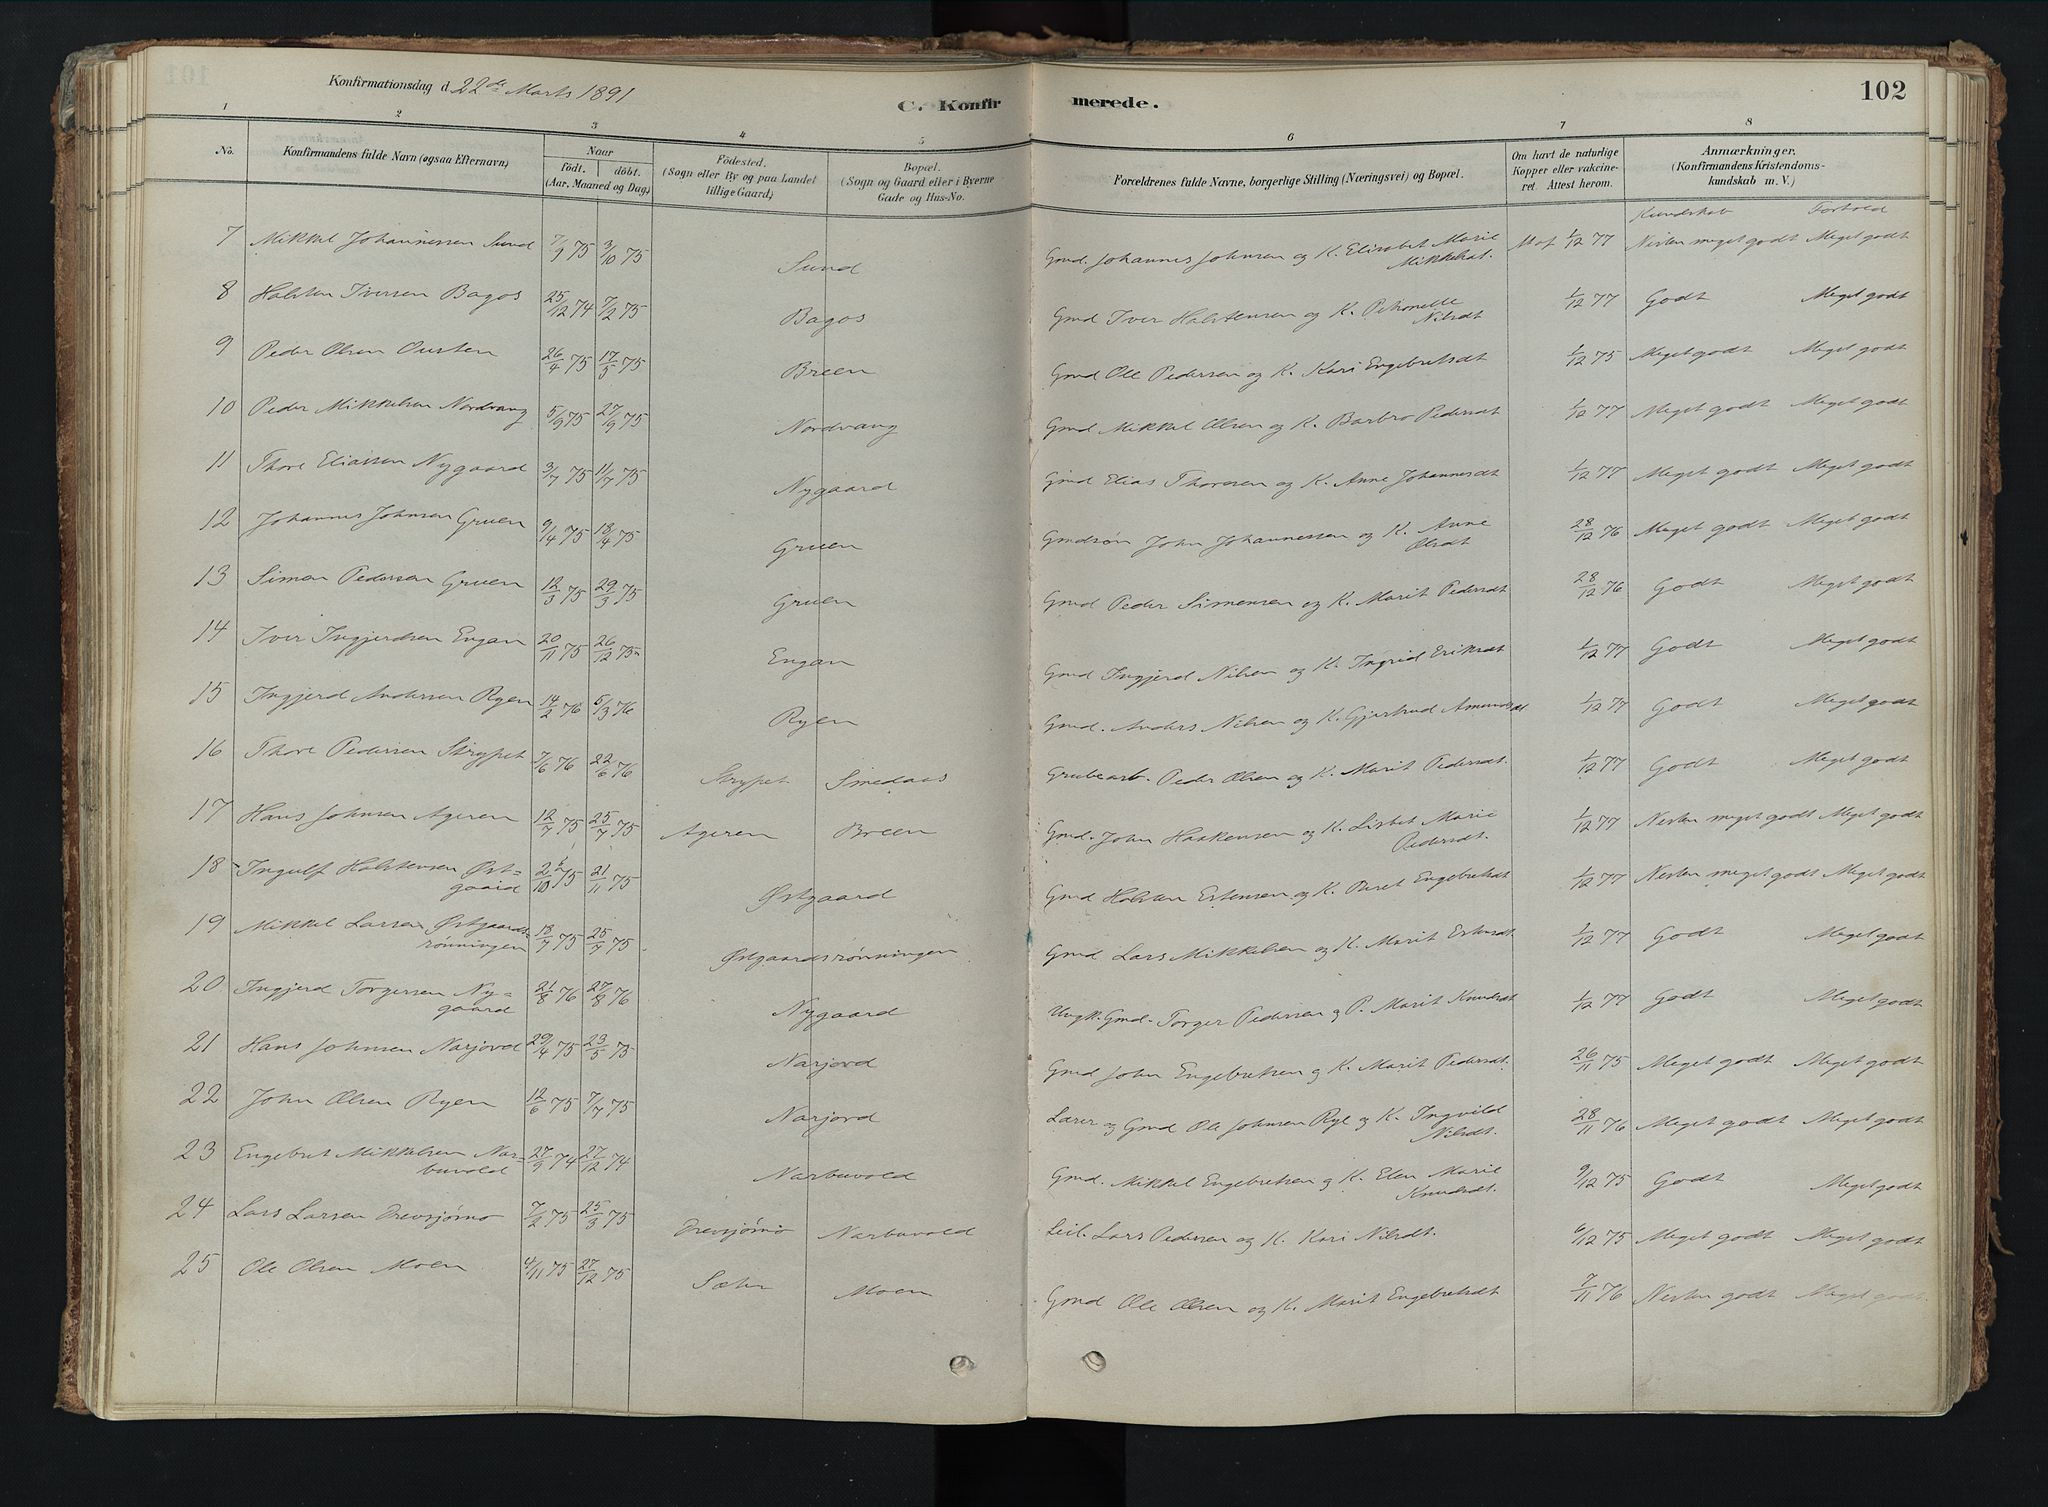 102
Konfirmationsdag d. 22de Marts 1891
C. Konfirmerede.
1 2 3 4 5 6 7 8
No. Konfirmandens fulde Navn (ogsaa Efternavn) Naar födt. döbt. (Aar, Maaned og Dag) Födested. (Sogn eller By og paa Landet tillige Gaard) Bopæl. (Sogn og Gaard eller i Byerne Gade og Hus-No. Forældrenes fulde Navne, borgerlige Stilling (Næringsvei) og Bopæl. Om havt de naturlige Kopper eller vakcineret. Attest herom. Anmærkninger. (Konfirmandens Kristendomskundskab m. V.)
Kundskab Forhold
7 Mikkel Johannessen Sund 7/9 75 3/10 75 Sund Gmd. Johannes Johnsen og K. Elisabet Marie 1/12 77 Nesten meget godt Meget godt
Mikkelsdt.
8 Halsten Iversen Bagos 25/12 74 7/2 75 Bagos Gmd Iver Halstensen og K. Petronelle 1/12 77 Godt Meget godt
Nilsdt
9 Peder Olsen Ousten 26/4 75 17/5 75 Breen Gmd Ole Pedersen og K. Kari Engebretsdt 1/12 75 Meget godt Meget godt
10 Peder Mikkelsen Nordvang 5/9 75 27/9 75 Nordvang Gmd Mikkel Olsen og K. Barbro Pedersdt 1/12 77 Meget godt Meget godt
11 Thore Eliassen Nygaard 3/7 75 11/7 75 Nygaard Gmd Elias Thoresen og K. Anne Johannesdt 1/12 77 Meget godt Meget godt
12 Johannes Johnsen Gruen 9/4 75 18/4 75 Gruen Gmdsön John Johannessen og K. Anne 28/12 76 Meget godt Meget godt
Olsdt
13 Simon Pedersen Gruen 12/3 75 29/3 75 Gruen Gmd Peder Simensen og K. Marit Pedersdt 28/12 76 Godt Meget godt
14 Iver Ingjerdsen Engan 20/11 75 26/12 75 Engan Gmd Ingjerd Nilsen og K. Ingrid Eriksdt 1/12 77 Godt Meget godt
15 Ingjerd Andersen Ryen 14/2 76 5/3 76 Ryen Gmd. Anders Nilsen og K. Gjertrud Amundsdt 1/12 77 Godt Meget godt
16 Thore Pedersen Strypet 7/6 76 22/6 76 Strypet Smedaas Grubearb. Peder Olsen og K. Marit Pedersdt. 1/12 77 Godt Meget godt
17 Hans Johnsen Ageren 12/7 75 25/7 75 Ageren Breen Gmd. John Haakensen og K. Lisbet Marie 1/12 77 Nesten meget godt Meget godt
Pedersdt.
18 Ingulf Halstensen Øst- 21/11 75 Østgaard Gmd Halsten Estensen og K. Beret Engebretsdt 1/12 77 Nesten meget godt Meget godt
gaard
19 Mikkel Larsen Østgaards- 18/7 75 25/7 75 Østgaardsrönningen Gmd Lars Mikkelsen og K. Marit Estensdt 1/12 77 Godt Meget godt
rönningen
20 Ingjerd Torgersen Ny- 21/8 76 27/8 76 Nygaard Ungk. Gmd. Torger Pedersen og P. Marit Knudsdt 1/12 77 Godt Meget godt
gaard
21 Hans Johnsen Narjord 29/4 75 23/5 75 Narjord Gmd John Engebretsen og K. Marit Pedersdt. 26/11 75 Meget godt Meget godt
22 John Olsen Ryen 12/6 75 7/7 75 Narjord Lærer og Gmd Ole Johnsen Rye og K. Ingvild 28/11 76 Meget godt Meget godt
Nilsdt.
23 Engebret Mikkelsen Nar- 27/9 74 27/12 74 Narbuvold Gmd. Mikkel Engebretsen og K. Elen Marie 9/12 75 Godt Meget godt
buvold Knudsdt.
24 Lars Larsen Drevsjömo 7/2 75 25/3 75 Drevsjömo Narbuvold Leil. Lars Pedersen og K. Kari Nilsdt. 6/12 75 Meget godt Meget godt
25 Ole Olsen Moen 4/11 75 27/12 75 Sæter Moen Gmd Ole Olsen og K. Marit Engebretsdt 7/11 76 Nesten godt Meget godt